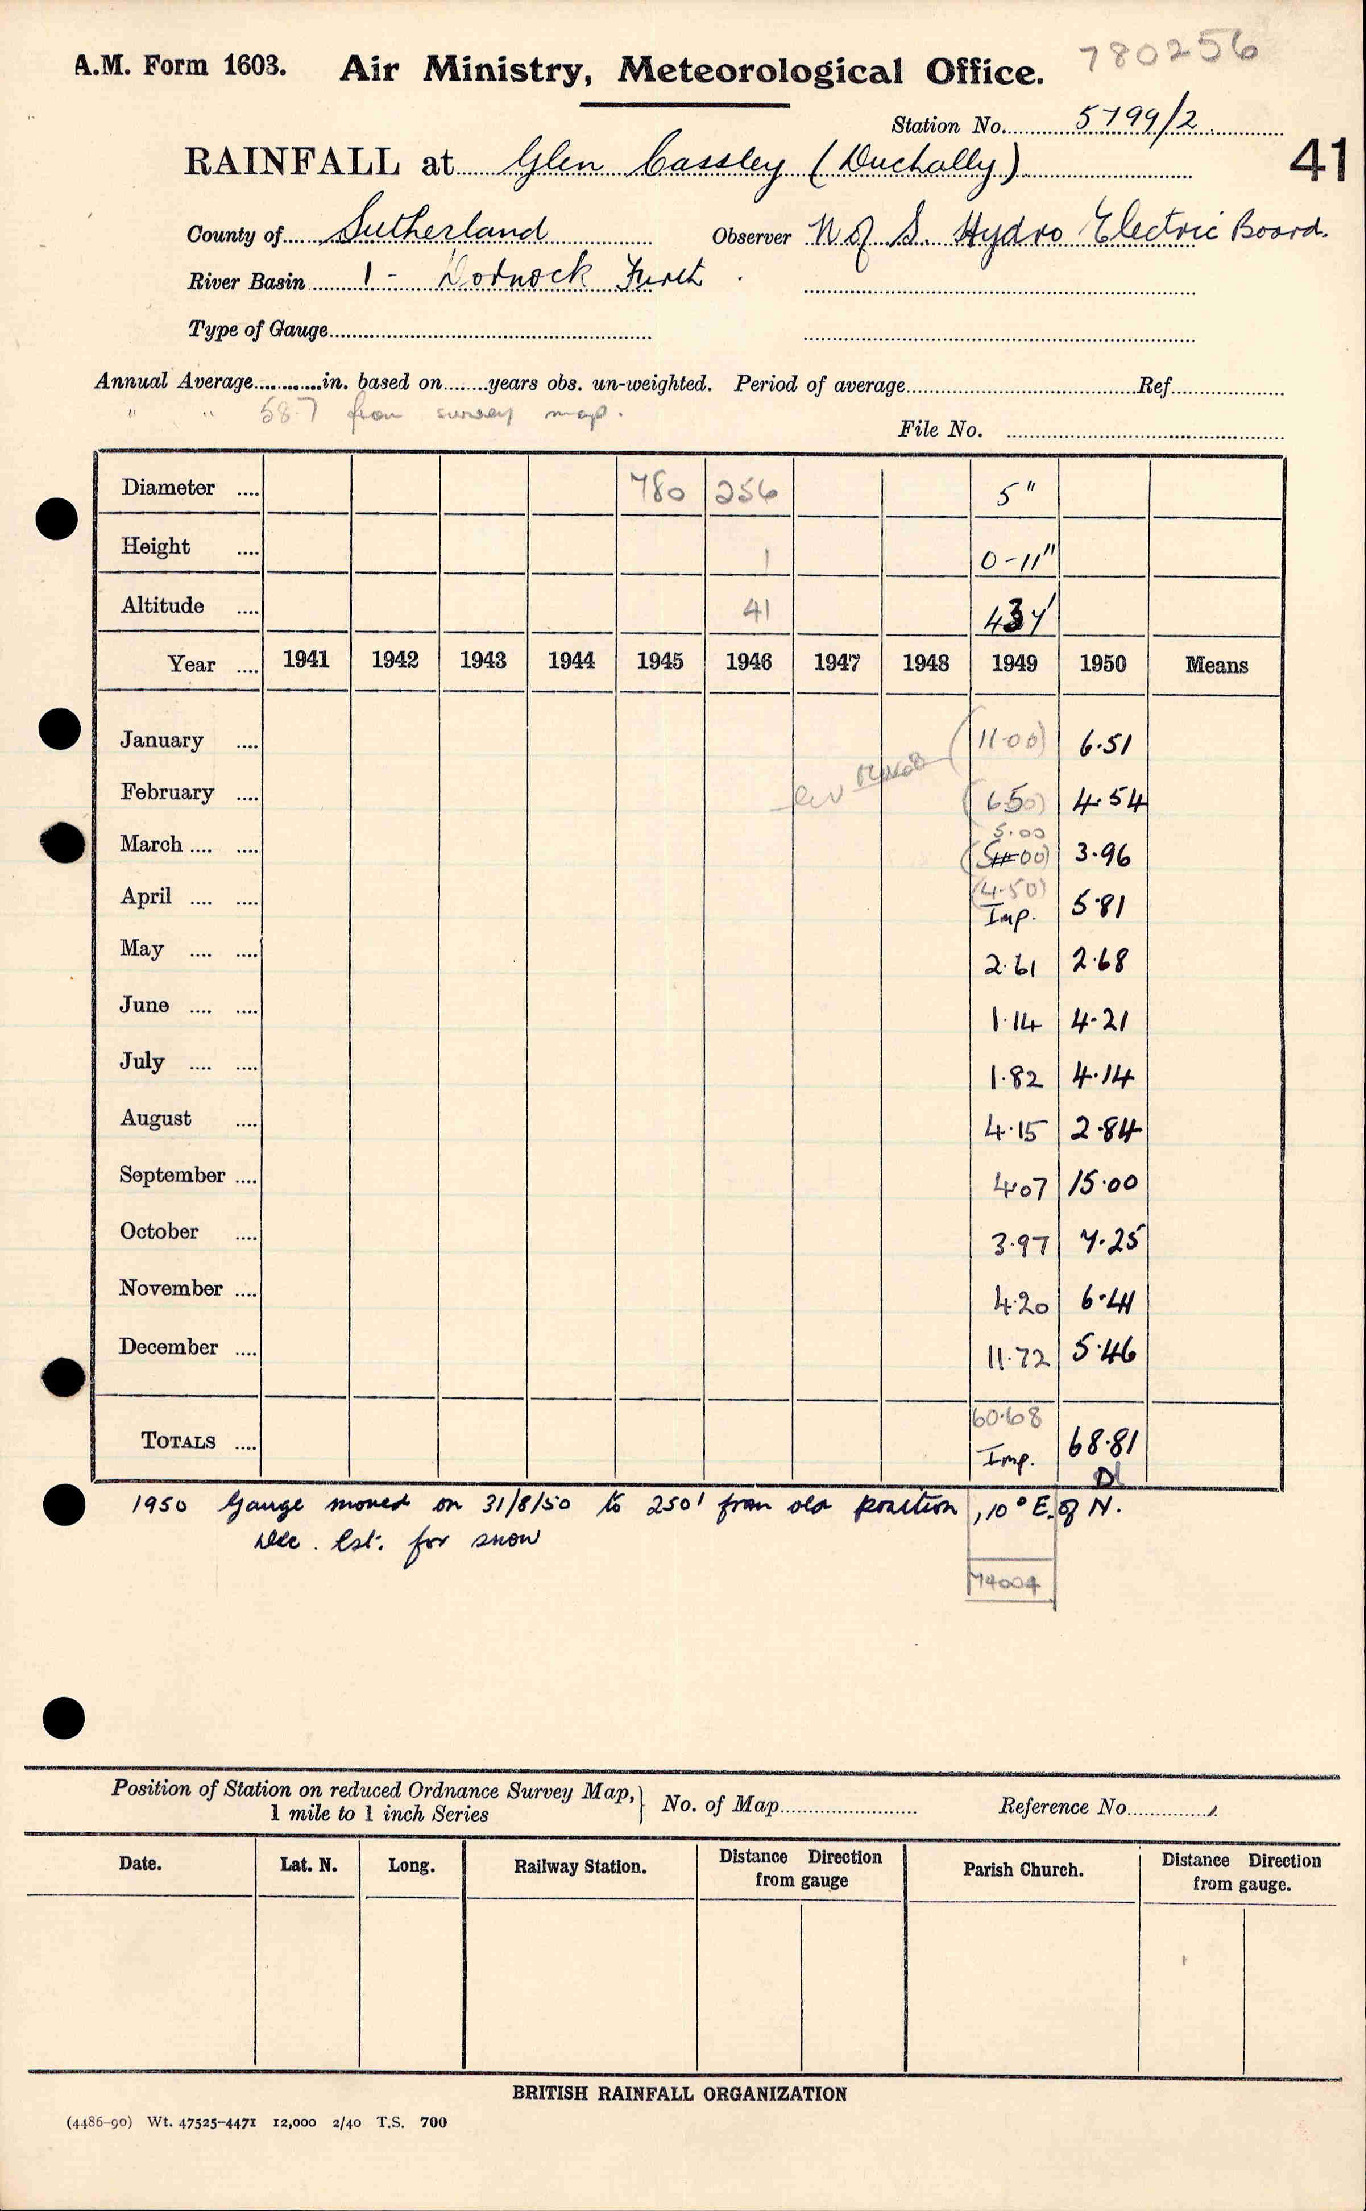 780256
A.M. Form 1603. Air Ministry, Meteorological Office.
Station No. 5799/2
41
RAINFALL at Glen Cassley (Duchally)
County of Sutherland Observer N of S. Hydro Electric Board.
River Basin 1 - Dornock Firth
Type of Gauge
Annual Average in. based on years obs. un-weighted. Period of average Ref.
" " 58.7 from survey map.
File No.
Diameter 780 256 5"
Height 1 0-11"
Altitude 41 437'
Year 1941 1942 1943 1944 1945 1946 1947 1948 1949 1950 Means
January (11.00) 6.51
February (6.50) 4.54
5.00
March (5.00) 3.96
(4.50)
April Imp. 5.81
May 2.61 2.68
June 1.14 4.21
July 1.82 4.14
August 4.15 2.84
September 4.07 15.00
October 3.97 7.25
November 4.20 6.41
December 11.72 5.46
60.68
TOTALS Imp. 68.81
1950 Gauge moved on 31/8/50 to 250' from old position, 10° E. of N.
Dec. Est. for snow
74004
Position of Station on reduced Ordnance Survey Map, 1 mile to 1 inch Series } No. of Map Reference No.
Date. Lat. N. Long. Railway Station. Distance Direction from gauge Parish Church. Distance Direction from gauge.
BRITISH RAINFALL ORGANIZATION
(4486-90) Wt. 47525-4471 12,000 2/40 T.S. 700